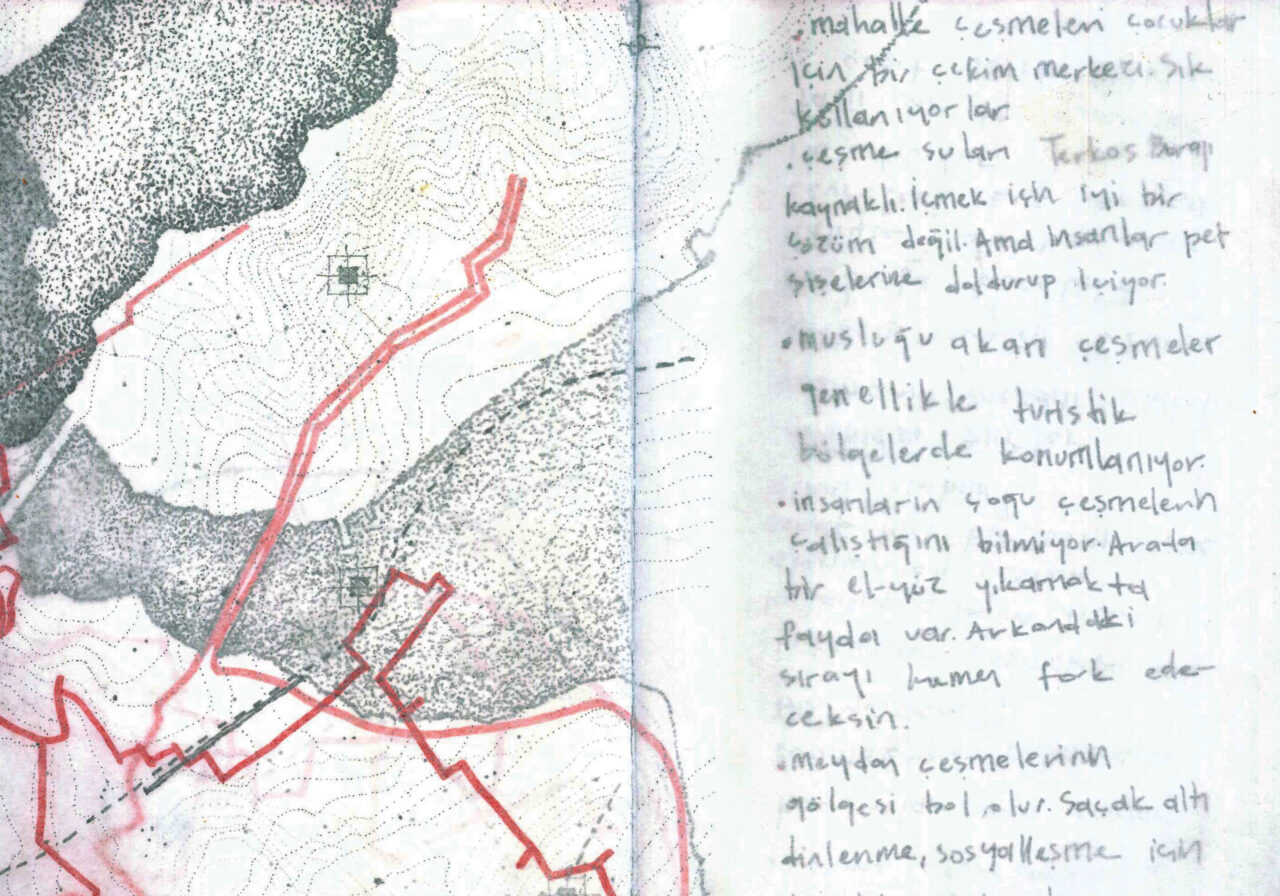 . mahalle çeşmeleri çocuklar
için bir çekim merkezi. Sık
kullanıyorlar.
. çeşme suları Terkos Barajı
kaynaklı. İçmek için iyi bir
çözüm değil. Ama insanlar pet
şişelerine doldurup içiyor.
. musluğu akan çeşmeler
genellikle turistik
bölgelerde konumlanıyor.
. insanların çoğu çeşmelerin
çalıştığını bilmiyor. Arada
bir el-yüz yıkamakta
fayda var. Arkandaki
sırayı hemen fark ede-
ceksin.
. meydan çeşmelerinin
gölgesi bol olur. Saçak altı
dinlenme, sosyalleşme için